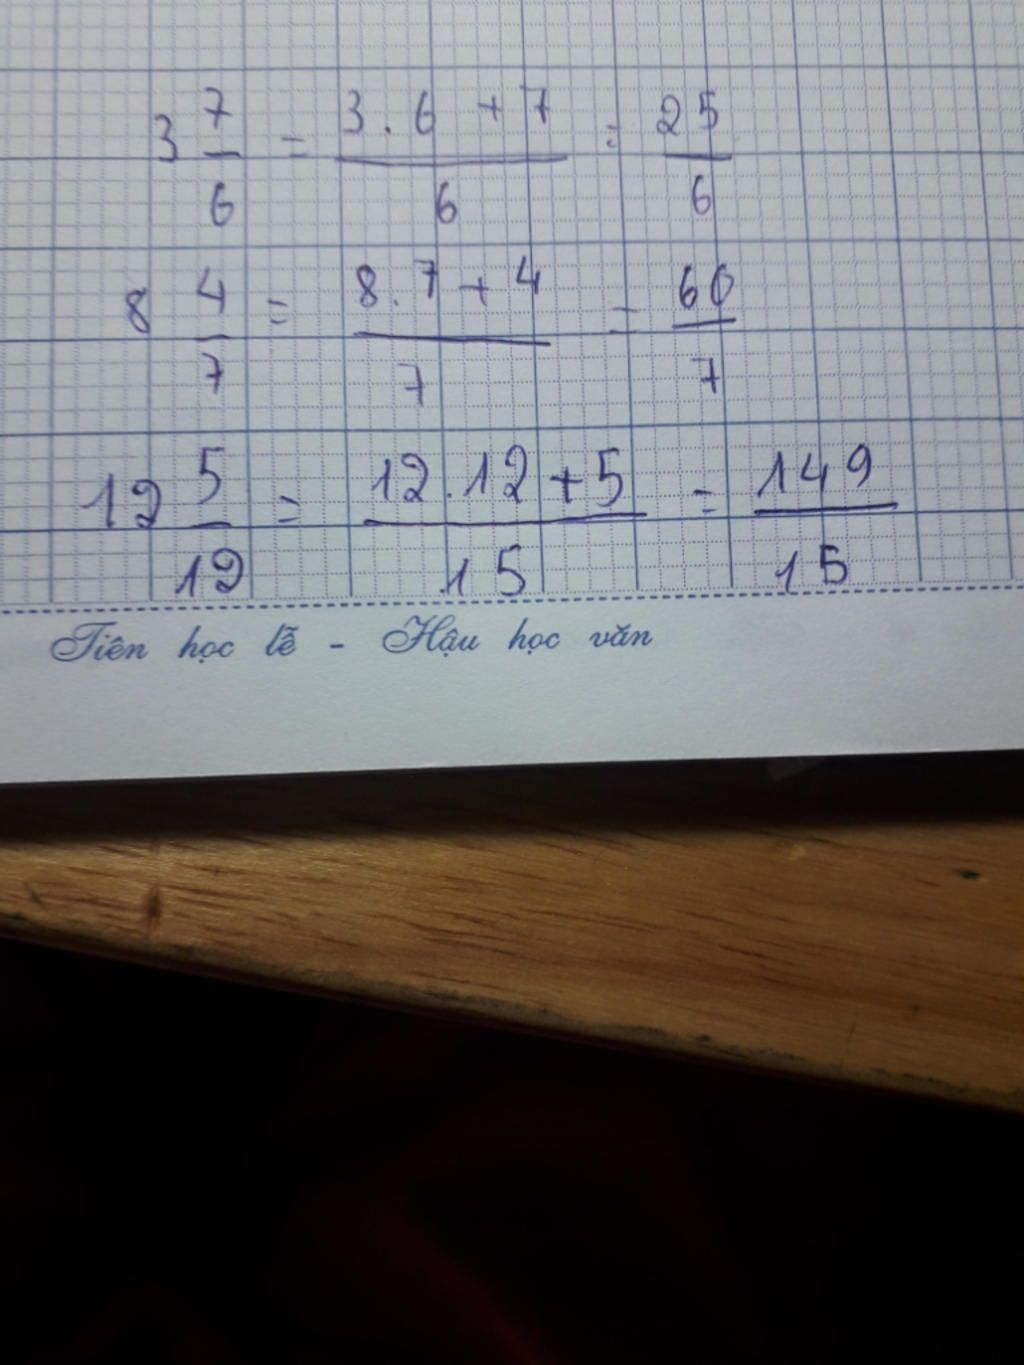 3 7/6 = (3.6 + 7)/6 = 25/6
8 4/7 = (8.7 + 4)/7 = 60/7
12 5/12 = (12.12 + 5)/15 = 149/15
Tiên học lễ - Hậu học văn